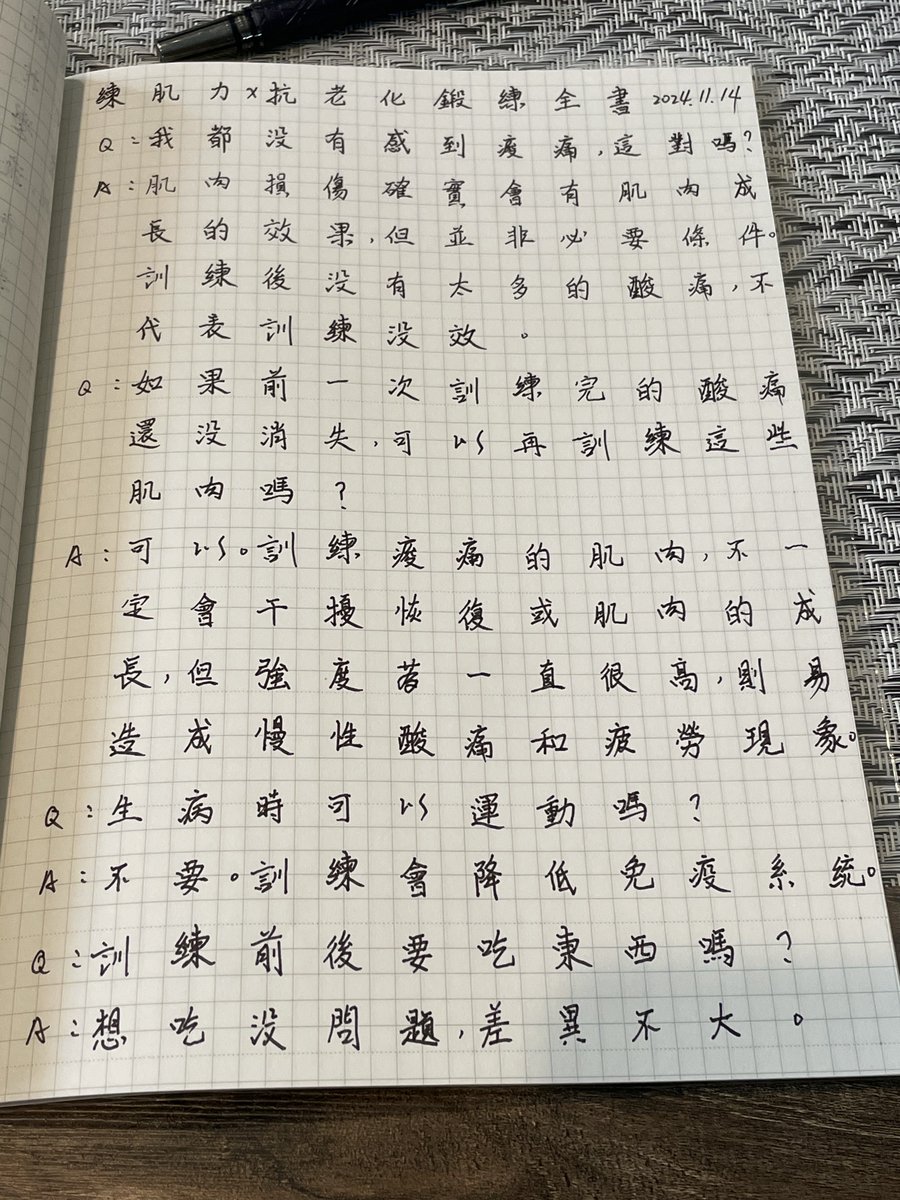 練肌力×抗老化鍛練全書 2024.11.14
Q:我都没有感到痠痛,這對嗎?
A:肌肉損傷確實會有肌肉成
長的效果,但並非必要條件。
訓練後没有太多的酸痛,不
代表訓練没效。
Q:如果前一次訓練完的酸痛
還没消失,可以再訓練這些
肌肉嗎?
A:可以。訓練痠痛的肌肉,不一
定會干擾恢復或肌肉的成
長,但強度若一直很高,則易
造成慢性酸痛和疲勞現象。
Q:生病時可以運動嗎?
A:不要。訓練會降低免疫系統。
Q:訓練前後要吃東西嗎?
A:想吃没問題,差異不大。